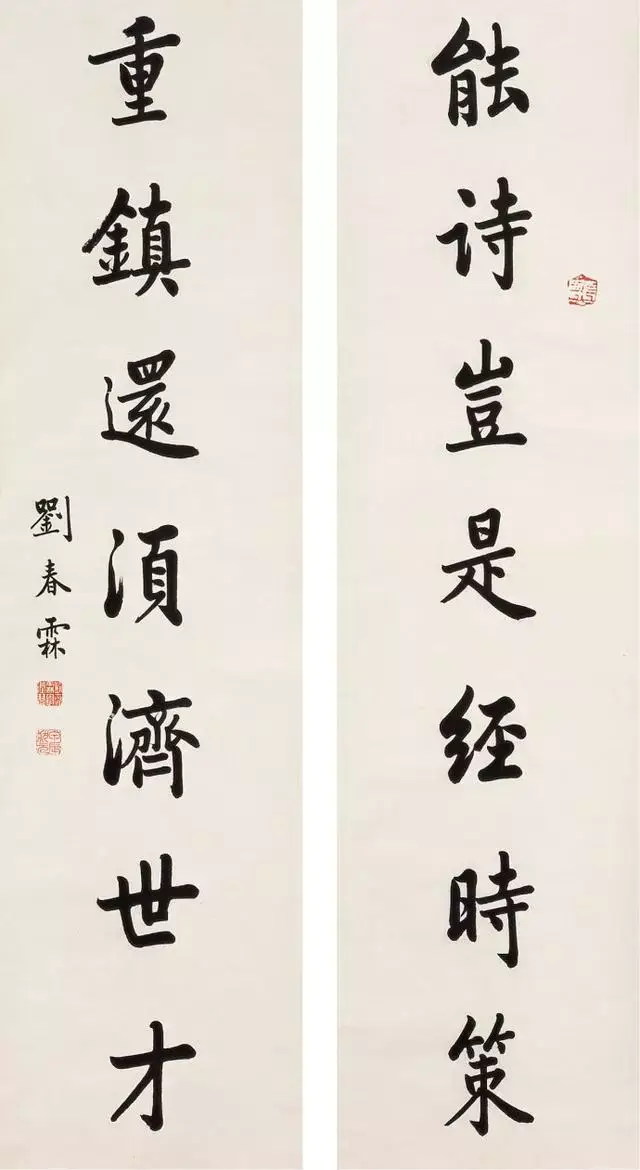 能诗豈是经時策
重鎮還湏濟世才
劉春霖